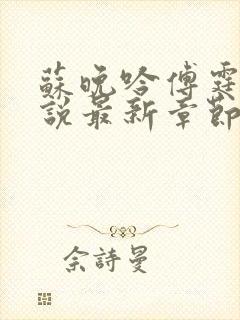 蘇晚吟傅霆
說最新章節
佘詩曼